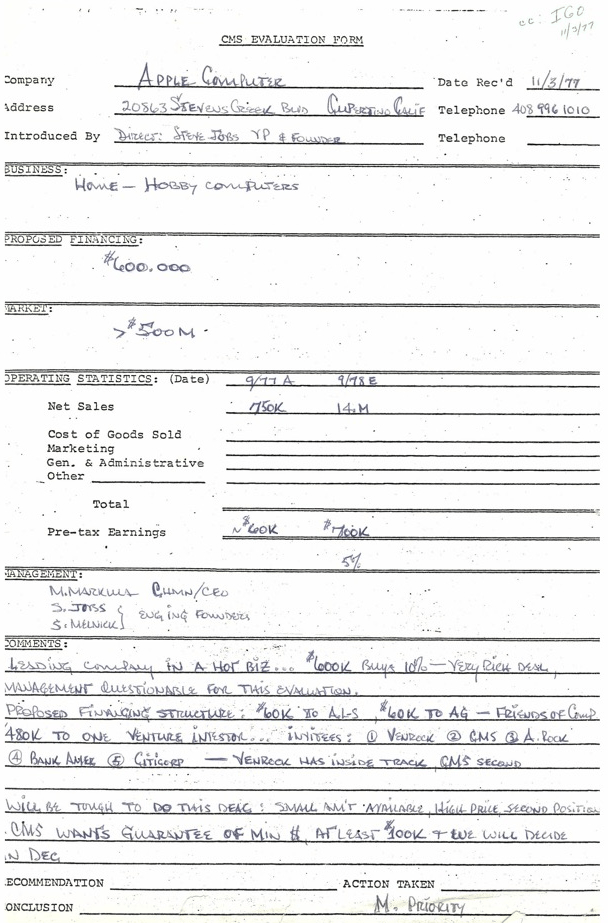 cc: IGO
11/3/77
CMS EVALUATION FORM
Company APPLE COMPUTER Date Rec'd 11/3/77
Address 20863 STEVENS CREEK BLVD CUPERTINO CALIF Telephone 408 996 1010
Introduced By DIRECT: STEVE JOBS VP & FOUNDER Telephone
BUSINESS:
HOME - HOBBY COMPUTERS
PROPOSED FINANCING:
$600.000
MARKET:
>$500M.
OPERATING STATISTICS: (Date) 9/77 A 9/78 E
Net Sales 750K 14.M
Cost of Goods Sold
Marketing
Gen. & Administrative
Other
Total
Pre-tax Earnings ~$60K $700K
5%
MANAGEMENT:
M. MARKULA CHMN/CEO
S. JOBS
S. MELNICK } ENGING FOUNDERS
COMMENTS:
LEADING COMPANY IN A HOT BIZ... $600K BUYS 10% - VERY RICH DEAL,
MANAGEMENT QUESTIONABLE FOR THIS EVALUATION.
PROPOSED FINANCING STRUCTURE: $60K TO ALS, $60K TO AG - FRIENDS OF COMP
480K TO ONE VENTURE INVESTOR... INVITEES: ① VENROCK ② CMS ③ A. ROCK
④ BANK AMER ⑤ CITICORP - VENROCK HAS INSIDE TRACK, CMS SECOND
WILL BE TOUGH TO DO THIS DEAL: SMALL AM'T AVAILABLE, HIGH PRICE, SECOND POSITION
CMS WANTS GUARANTEE OF MIN $, AT LEAST $100K & WE WILL DECIDE
IN DEC
RECOMMENDATION ACTION TAKEN
CONCLUSION M. PRIORITY